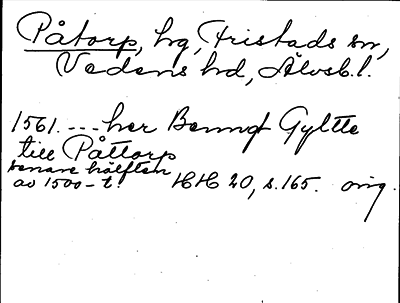 Påtorp, hg, Fristads sn,
Vedens hd, Älvsb. l.
1561. --- her Benngt Gyltte
till Påttorp
senare hälften
av 1500-t. HH 20, s. 165. orig.